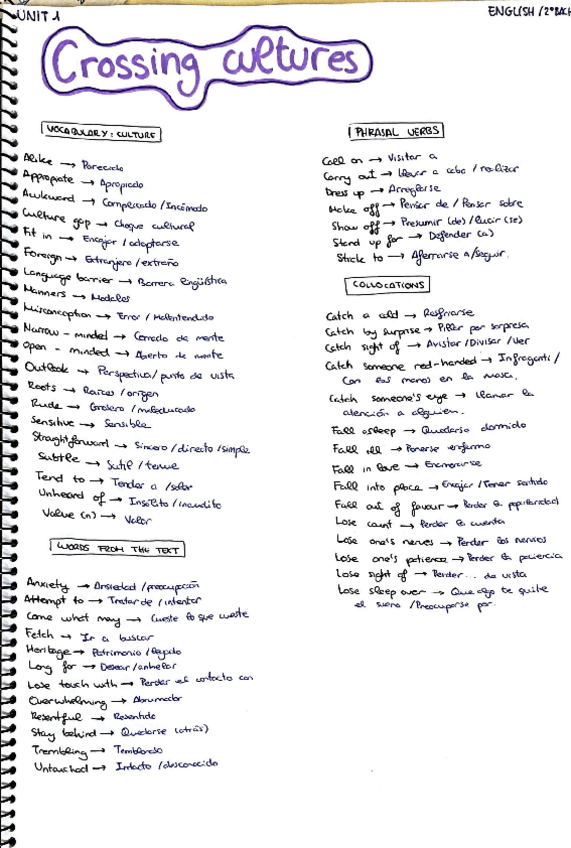 UNIT 1
ENGLISH / 2º BACH
Crossing cultures
VOCABULARY: CULTURE
Alike → Parecido
Appropiate → Apropiado
Awkward → Complicado / Incómodo
Culture gap → Choque cultural
Fit in → Encajar / adaptarse
Foreign → Extranjero / extraño
Language barrier → Barrera lingüística
Manners → Modales
Misconception → Error / Malentendido
Narrow - minded → Cerrado de mente
Open - minded → Abierto de mente
Outlook → Perspectiva / punto de vista
Roots → Raíces / origen
Rude → Grosero / maleducado
Sensitive → Sensible
Straightforward → Sincero / directo / simple
Subtle → Sutil / tenue
Tend to → Tender a / soler
Unheard of → Insólito / inaudito
Value (n) → Valor
WORDS FROM THE TEXT
Anxiety → Ansiedad / preocupación
Attempt to → Tratar de / intentar
Come what may → Cueste lo que cueste
Fetch → Ir a buscar
Heritage → Patrimonio / legado
Long for → Desear / anhelar
Lose touch with → Perder el contacto con
Overwhelming → Abrumador
Resentful → Resentido
Stay behind → Quedarse (atrás)
Trembling → Tembloroso
Untouched → Intacto / desconocido
PHRASAL VERBS
Call on → Visitar a
Carry out → Llevar a cabo / realizar
Dress up → Arreglarse
Make off → Pensar de / Pensar sobre
Show off → Presumir (de) / Lucir (se)
Stand up for → Defender (a)
Stick to → Aferrarse a / Seguir.
COLLOCATIONS
Catch a cold → Resfriarse
Catch by surprise → Pillar por sorpresa
Catch sight of → Avistar / Divisar / Ver
Catch someone red-handed → Infraganti /
Con las manos en la masa.
Catch someone's eye → Llamar la
atención a alguien.
Fall asleep → Quedarse dormido
Fall ill → Ponerse enfermo
Fall in love → Enamorarse
Fall into place → Encajar / Tener sentido
Fall out of favour → Perder la popularidad
Lose count → Perder la cuenta
Lose one's nerves → Perder los nervios
Lose one's patience → Perder la paciencia
Lose sight of → Perder... de vista
Lose sleep over → Que algo te quite
el sueño / Preocuparse por.